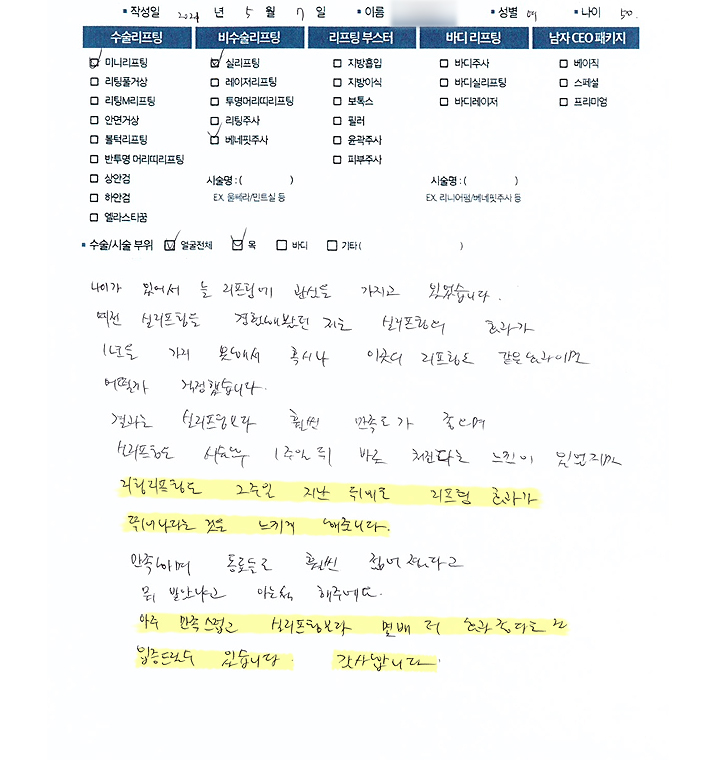 ▪ 작성일 2024 년 5 월 7 일 ▪ 이름 ▪ 성별 여 ▪ 나이 50.
수술리프팅 비수술리프팅 리프팅 부스터 바디 리프팅 남자 CEO 패키지
미니리프팅 실리프팅 지방흡입 바디주사 베이직
리팅풀거상 레이저리프팅 지방이식 바디실리프팅 스페셜
리팅M리프팅 투명머리띠리프팅 보톡스 바디레이저 프리미엄
안면거상 리팅주사 필러
볼턱리프팅 베네핏주사 윤곽주사
반투명 머리띠리프팅 피부주사
상안검 시술명 : ( ) 시술명 : ( )
하안검 EX. 울쎄라/민트실 등 EX. 리니어펌/베네핏주사 등
엘라스티꿈
▪ 수술/시술 부위 얼굴전체 목 바디 기타 ( )
나이가 있어서 늘 리프팅에 관심을 가지고 있었습니다.
예전 실리프팅을 경험해봤던 저는 실리프팅의 효과가
1년을 가지 못해서 혹시나 리프팅도 같은 효과이면
어떨까 걱정했습니다.
결과는 실리프팅보다 훨씬 만족도가 좋으며
실리프팅도 시술후 1주일 뒤 바로 처진다는 느낌이 있었지만
리팅리프팅도 2주일 지난 뒤에도 리프팅 효과가
뛰어나다는 것을 느끼게 해줍니다.
만족하며 동료들도 훨씬 젊어졌다고
뭐 맞았냐고 아는척 해주네요.
아주 만족스럽고 실리프팅보다 몇배 더 효과 있다는걸
입증드릴수 있습니다. 감사합니다.